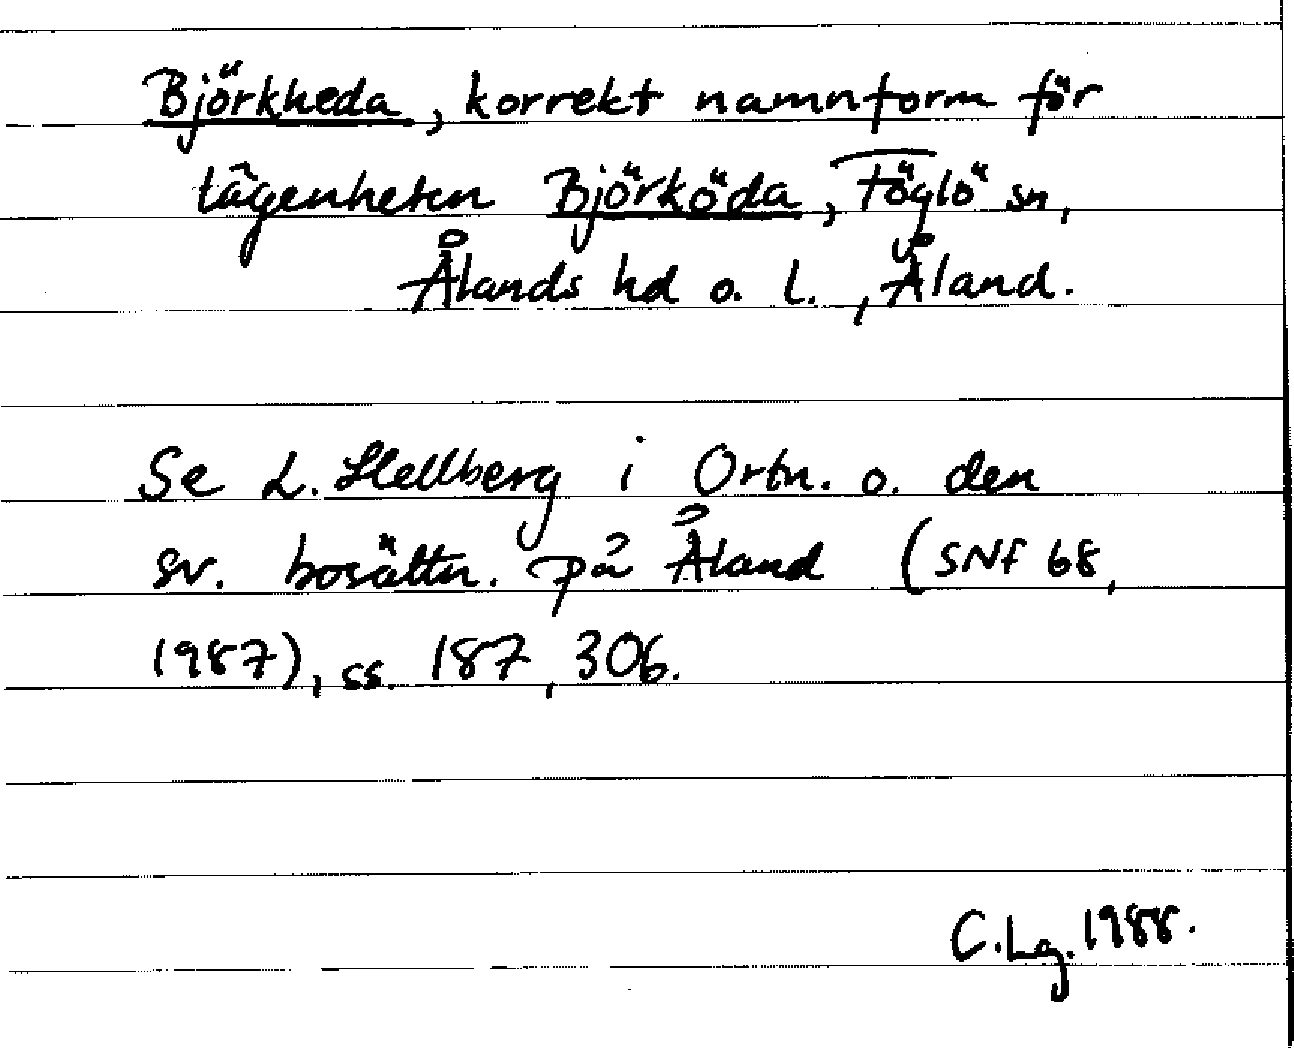 Björkheda, korrekt namnform för
lägenheten Björköda, Föglö sn,
Ålands hd o. l., Åland.
Se L. Hellberg i Ortn. o. den
sv. bosättn. på Åland (SNF 68,
1987), ss. 187, 306.
C.Lg. 1988.